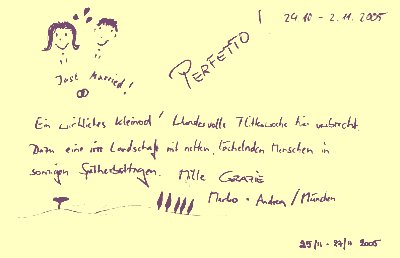 29.10 - 2.11.2005
PERFETTO!
Just Married!
Ein wirkliches Kleinod! Wundervolle Flitterwoche hier verbracht.
Dazu eine irre Landschaft mit netten, lächelnden Menschen in
sonnigen Spätherbsttagen. Mille GRAZIE
Marko + Andrea / München
25/11 - 27/11 2005